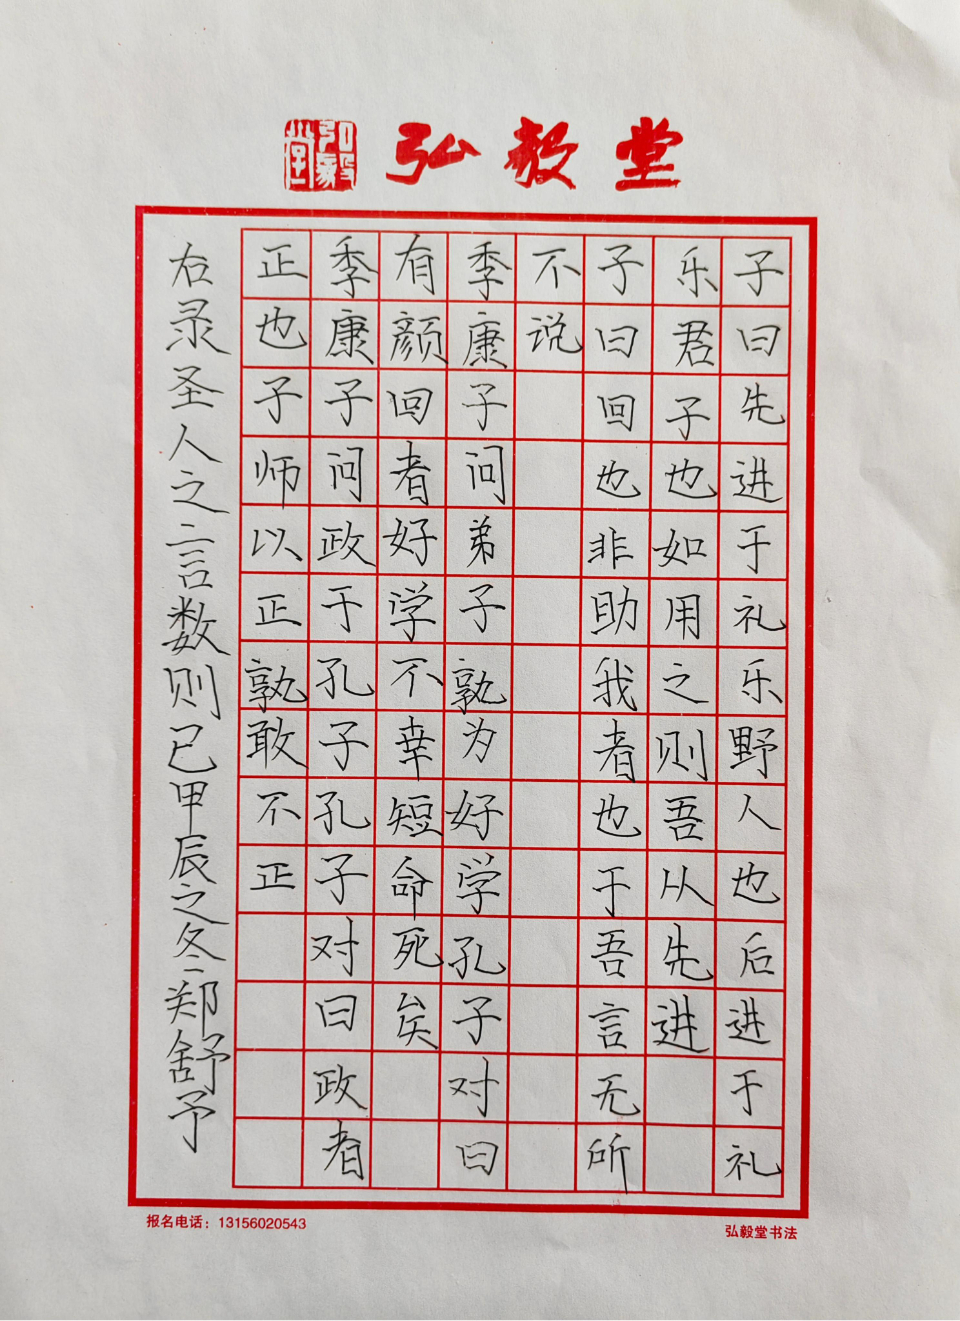 弘毅堂
弘毅堂
子曰先进于礼乐野人也后进于礼
乐君子也如用之则吾从先进
子曰回也非助我者也于吾言无所
不说
季康子问弟子孰为好学孔子对曰
有颜回者好学不幸短命死矣
季康子问政于孔子孔子对曰政者
正也子师以正孰敢不正
右录圣人之言数则已甲辰之冬郑舒予
报名电话：13156020543
弘毅堂书法